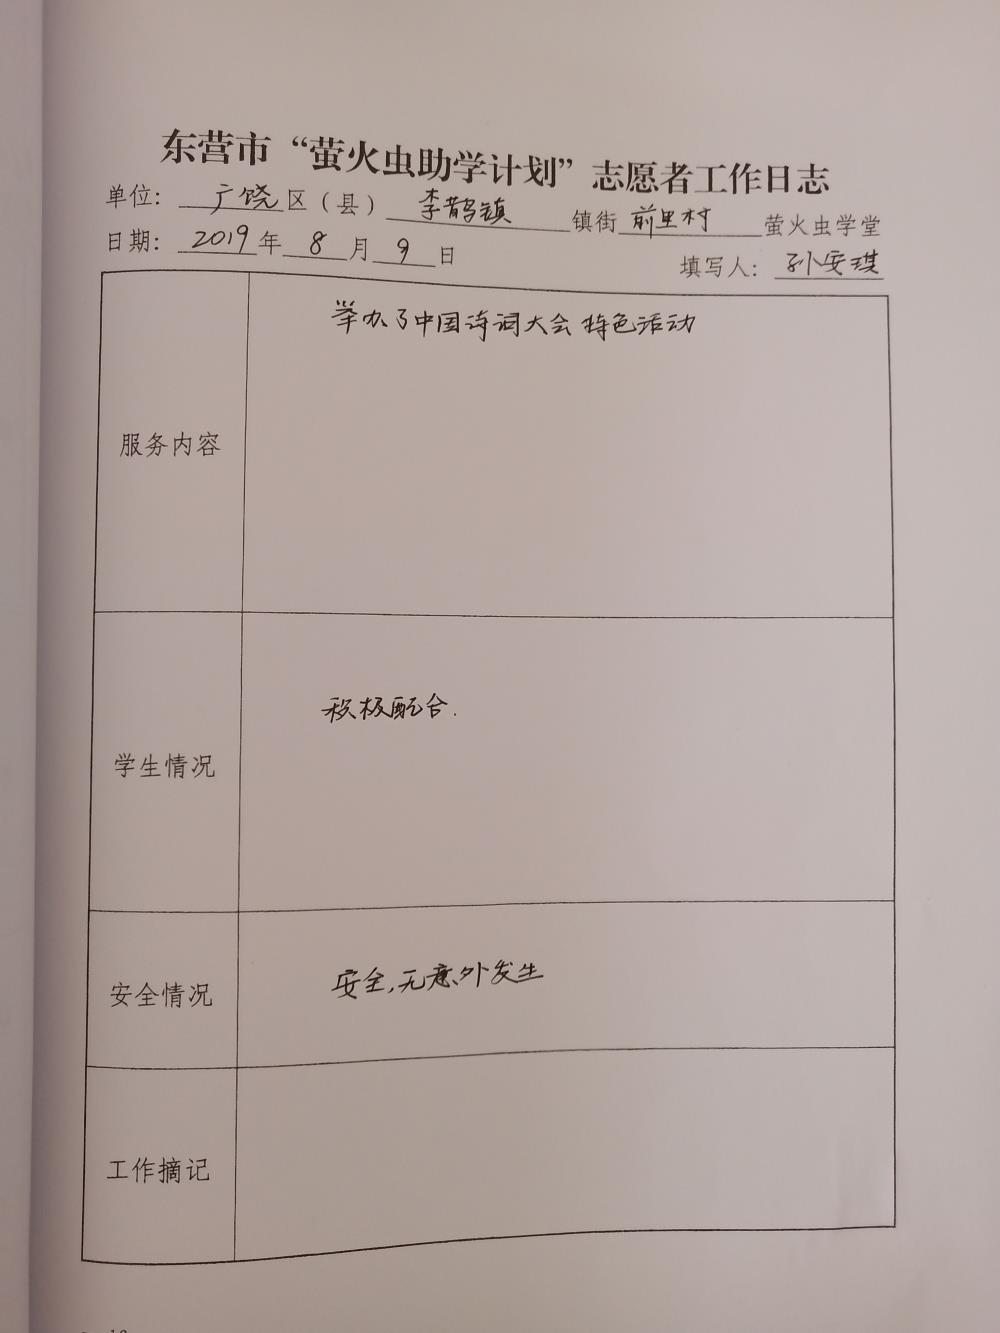 东营市“萤火虫助学计划”志愿者工作日志
单位：广饶区（县）李鹊镇镇街前里村萤火虫学堂
日期：2019年8月9日 填写人：孙安琪
服务内容 举办了中国诗词大会特色活动
学生情况 积极配合.
安全情况 安全,无意外发生
工作摘记